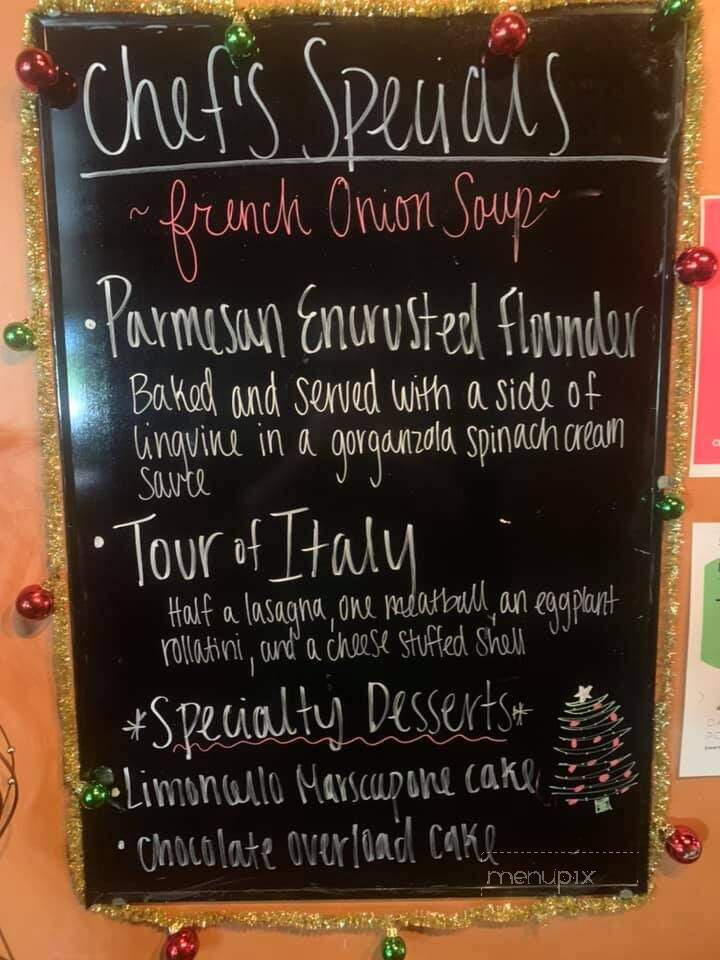 Chef's Specials
~ French Onion Soup ~
• Parmesan Encrusted Flounder
Baked and served with a side of
linguine in a gorganzola spinach cream
sauce
• Tour of Italy
Half a lasagna, one meatball, an eggplant
rollatini, and a cheese stuffed shell
*Specialty Desserts*
• Limoncello Marscapone cake
• Chocolate overload cake
menupix